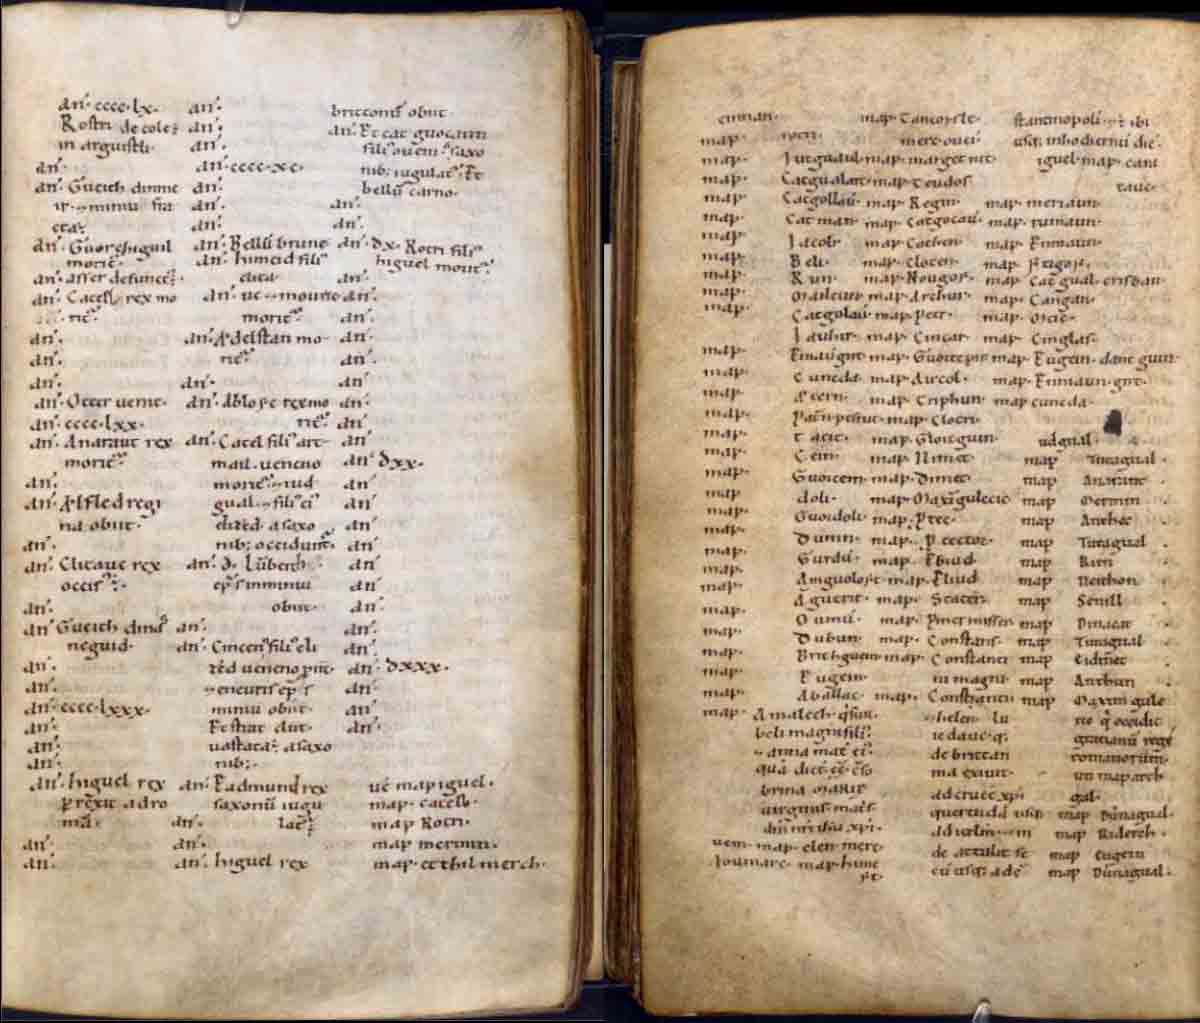 an̄. cccc.lx.
Rostri decole&
in arguistli.
an̄.
an̄. Gueith dinme
ir. ⁊ miniu fra
cta÷.
an̄. Guorchiguil
moritᵉ.
an̄. asser defunct÷.
an̄. Catell rex mo
ritᵉ.
an̄.
an̄.
an̄.
an̄. Otter uenit.
an̄. cccc.lxx.
an̄. Anaraut rex
moritᵉ.
an̄.
an̄. Ælfled regi
na obiit.
an̄.
an̄. Clitauc rex
occis÷.
an̄.
an̄ Gueith dinas
neguid.
an̄.
an̄.
an̄. cccc.lxxx.
an̄.
an̄.
an̄.
an̄. higuel rex
perrexit ad ro
mā.
an̄.
an̄.
an̄.
an̄.
an̄.
an̄. cccc.xc.
an̄.
an̄.
an̄.
an̄. Bellū brune
an̄. himeid filiᵘˢ
clita
an̄. uc ⁊ mouric
moritᵉ.
an̄. Ædelstan mo
ritᵉ.
an̄.
an̄. Abloyc rex mo
ritᵉ.
an̄. Catel filiᵘˢ art
mail. ueneno
moritᵉ. ⁊ iud
gual. ⁊ filiᵘˢ eiᵘˢ
elized. a saxo
nib; occidunt̄.
an̄. d. Lūberth
ep̄s in miniu
obiit.
an̄.
an̄. Cincenᵘˢ filiᵘˢ eli
zed ueneno periit.
⁊ eneuris ep̄s ī
miniu obiit.
Et strat clut
uastata÷ a saxo
nib;.
an̄. Eadmund rex
saxonū iugu
lat÷.
an̄.
an̄.
an̄. higuel rex
brittonū obiit.
an̄. Et cat guocaun
filiᵘˢ ouein. ᵃ saxo
nib; iugulat÷. Et
bellū carno.
an̄.
an̄.
an̄. dx. Rotri filiᵘˢ
higuel moritᵉ.
an̄.
an̄.
an̄.
an̄.
an̄.
an̄
an̄.
an̄.
an̄
an̄ dxx.
an̄
an̄
an̄
an̄
an̄
an̄
an̄.
an̄.
an̄.
an̄. dxxx.
an̄.
an̄.
an̄.
uē map iguel.
map. catell.
map Rotri.
map mermin.
map. etthil merch.
cinnan.
map. rotri.
map. Iutguaul.
map. Catgualart.
map. Catgollaū.
map. Cat man.
map. Iacob.
map. Beli.
map. Run.
map. Mailcun.
map. Catgolaū.
Iauhir.
map. Eniaun girt.
map. Cuneda.
map. Ætern.
map. Patern pesrut.
map. Tacit.
map. Cein.
map. Guorcein.
map doli.
map. Guordoli.
map. Dumn.
map. Gurdū.
map. Amguoloyt.
map. Anguerit.
map. Oumū.
map. Dubun.
map. Brithguein.
map. Eugein.
map. Aballac.
map. Amalech q̄ fuit.
beli magni filiᵘˢ.
⁊ anna mat̄ eiᵘˢ.
quā dic̄t ēē c̄so
brina MARIE
uirginis mat̄s.
dn̄i nr̄i ih̄u xp̄i.
uein. map. elen. merc
Ioumarc. map. hime
yt.
map. Tancoystl.
merc. ouei
map. margetiut.
map. Teudos.
map. Regin.
map. Catgocaū.
map. Cathen.
map. Cloten.
map. Nougoy.
map. Arthur.
map. Petr.
map. Cincar.
map. Guortepir.
map. Aircol.
map. Triphun.
map. Clotri.
map. Gloitguin.
map. Nimet.
map. Dimet.
map. Maxim guletic
map. Protec.
map. Protector.
map. Ebiud.
map. Eliud.
map. Stater.
map. Pincr misser.
map. Constans.
map. Constanti
ni magni.
map. Constantii
⁊ helen. lu
icdauc. q̄.
de brittan
nia exiuit.
ad crucē xp̄i.
querendā usq;
ad ierlm. ⁊ in
de attulit se
cū usq; ad c̄
stantinopoli. ⁊ ÷ ibi
usq; in hodiernū diē.
iguel. map. cara
tauc.
map. meriaun.
map. rumaun.
map. Enniaun.
map. Ytigoy.
map. Catgual. crisban.
map. Cangan.
map. Meic.
map. Cinglas.
map. Eugein. dant guin
map. Enniaun. girt.
map cuneda.
udgual.
map Tutagual.
map Anaraut
map Mermin
map Anthec
map Tutagual
map Run
map Neithon
map Senill
map Dinacat
map Tutagual
map Eidinet
map Anthun
map Maxim gule
tic q̄ occidit
gratianū regē
romanorūm.
un map arth
gal.
map Dūnagual.
map Riderch.
map eugein
map Dūnagual.